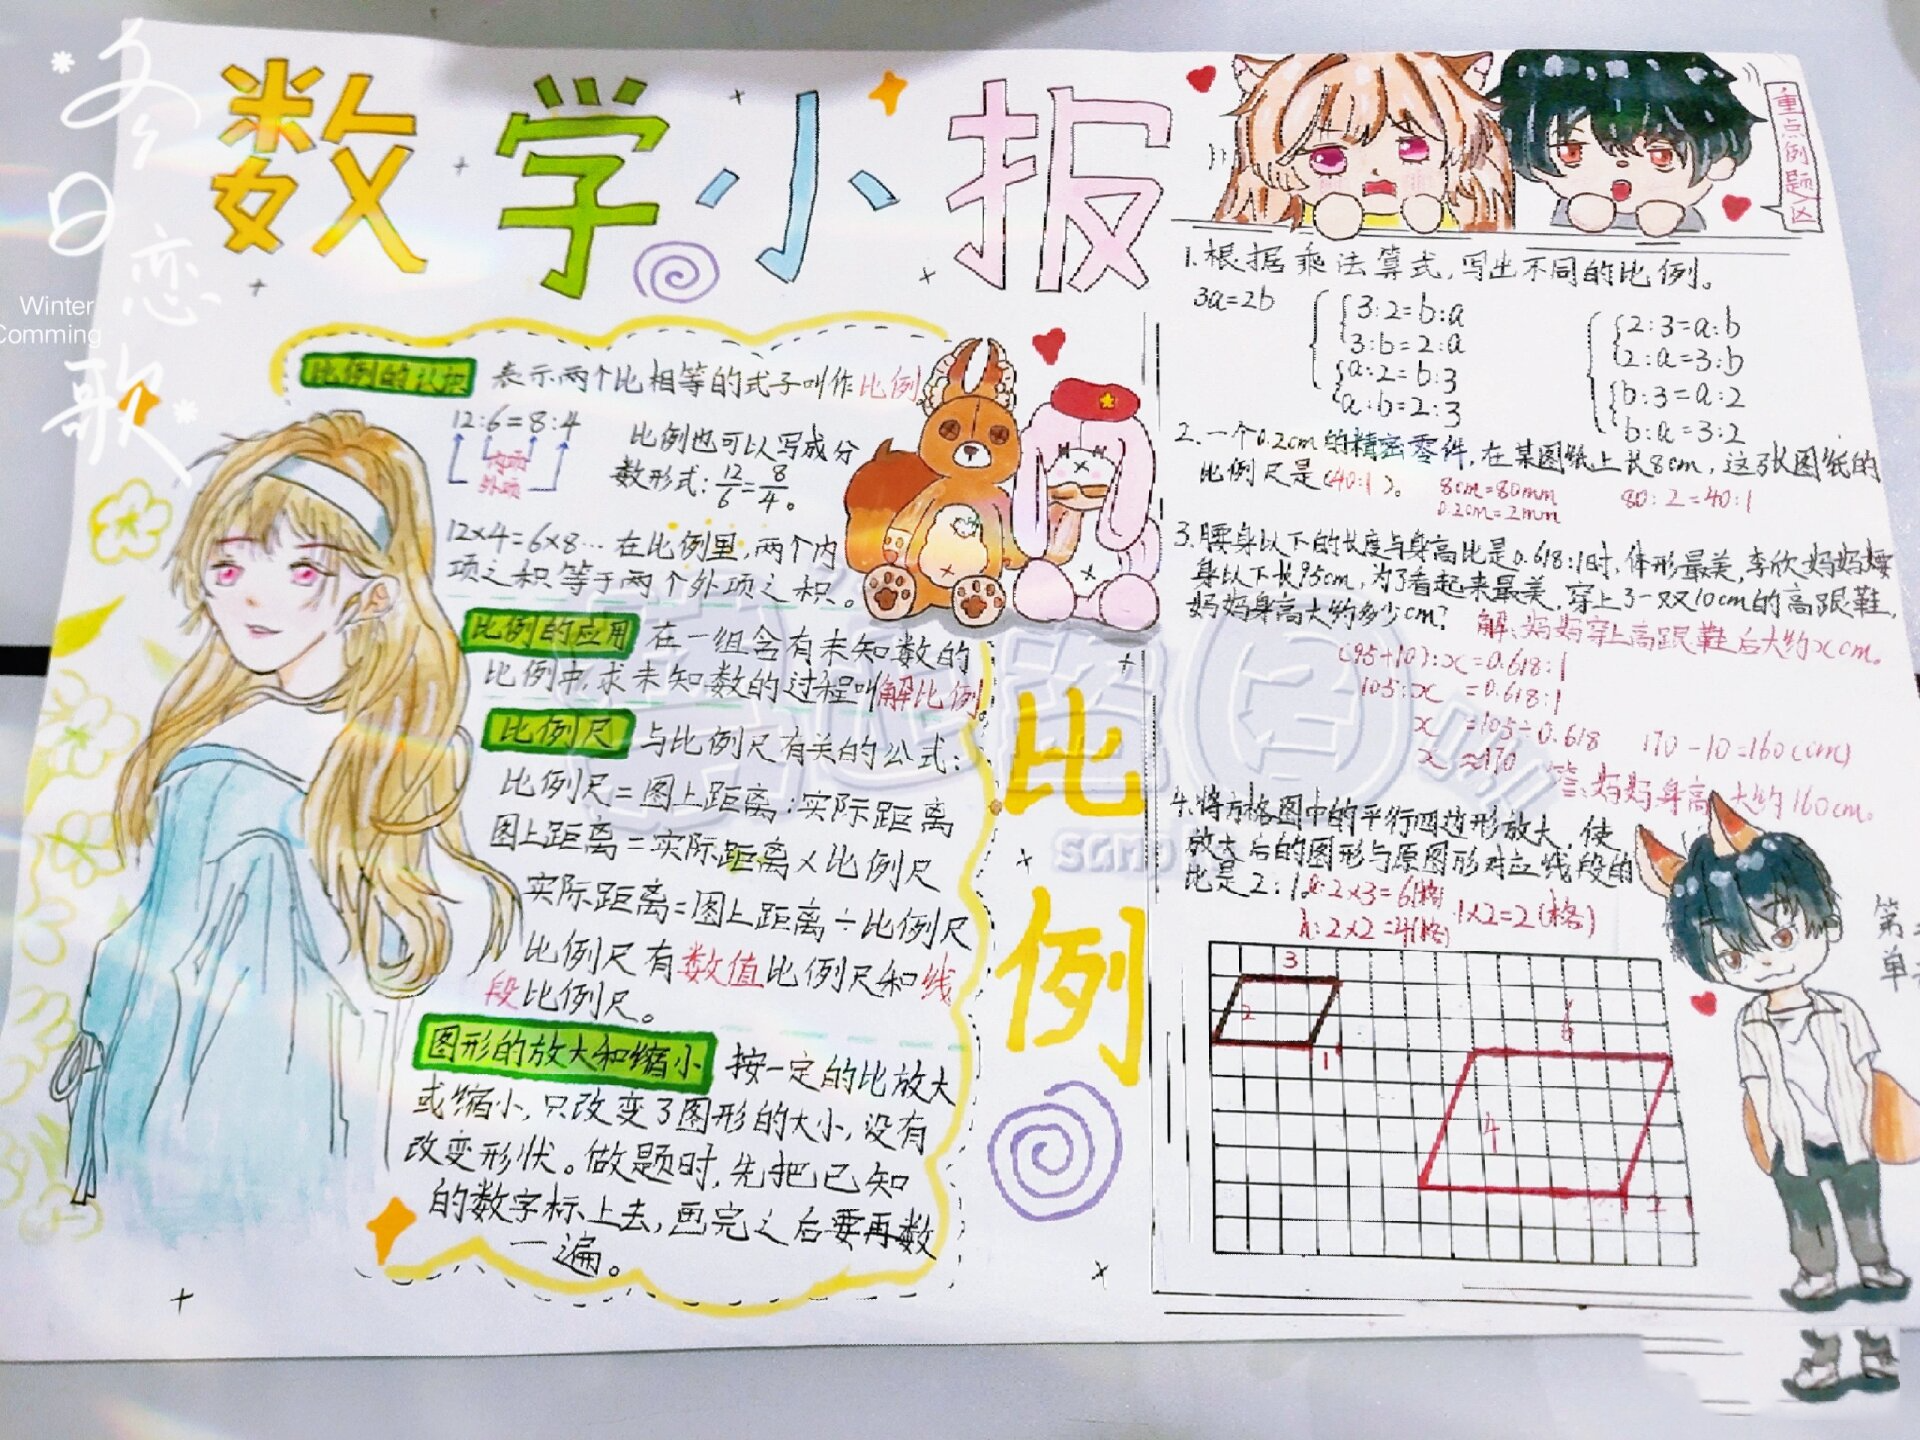 冬日恋歌
Winter
Comming
数学小报
比例的认识 表示两个比相等的式子叫作比例
12:6=8:4
内项
外项
比例也可以写成分
数形式:12/6=8/4。
12×4=6×8…在比例里,两个内
项之积等于两个外项之积。
比例的应用 在一组含有未知数的
比例中,求未知数的过程叫解比例
比例尺 与比例尺有关的公式:
比例尺=图上距离:实际距离
图上距离=实际距离×比例尺
实际距离=图上距离÷比例尺
比例尺有数值比例尺和线
段比例尺。
图形的放大和缩小 按一定的比放大
或缩小,只改变了图形的大小,没有
改变形状。做题时,先把已知
的数字标上去,画完之后要再数
一遍。
比例
重点例题区
1.根据乘法算式,写出不同的比例。
3a=2b
3:2=b:a
3:b=2:a
a:2=b:3
a:b=2:3
2:3=a:b
2:a=3:b
b:3=a:2
b:a=3:2
2.一个0.2cm的精密零件,在某图纸上长8cm,这张图纸的
比例尺是(40:1)。
8cm=80mm
0.2cm=2mm
80:2=40:1
3.腰身以下的长度与身高比是0.618:1时,体形最美,李欣妈妈腰
身以下长95cm,为了看起来最美,穿上了一双10cm的高跟鞋,
妈妈身高大约多少cm?
解:妈妈穿上高跟鞋后大约xcm。
(95+10):x=0.618:1
105:x=0.618:1
x=105÷0.618
x≈170
170-10=160(cm)
答:妈妈身高大约160cm。
4.将方格图中的平行四边形放大,使
放大后的图形与原图形对应线段的
比是2:1。
2×3=6(格)
2×2=4(格)
1×2=2(格)
3
2
1
6
4
2
第
单